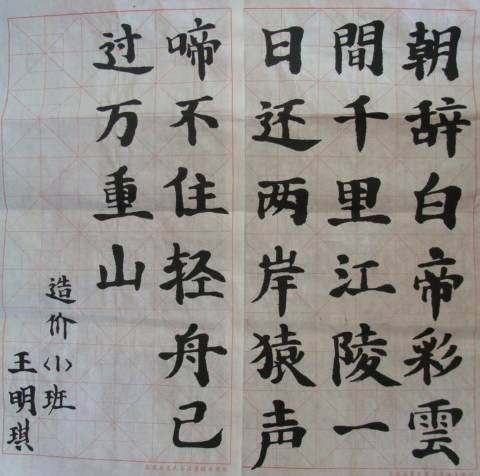 朝辞白帝彩雲
間千里江陵一
日还两岸猿声
啼不住轻舟已
过万重山
造价〈1〉班
王明琪